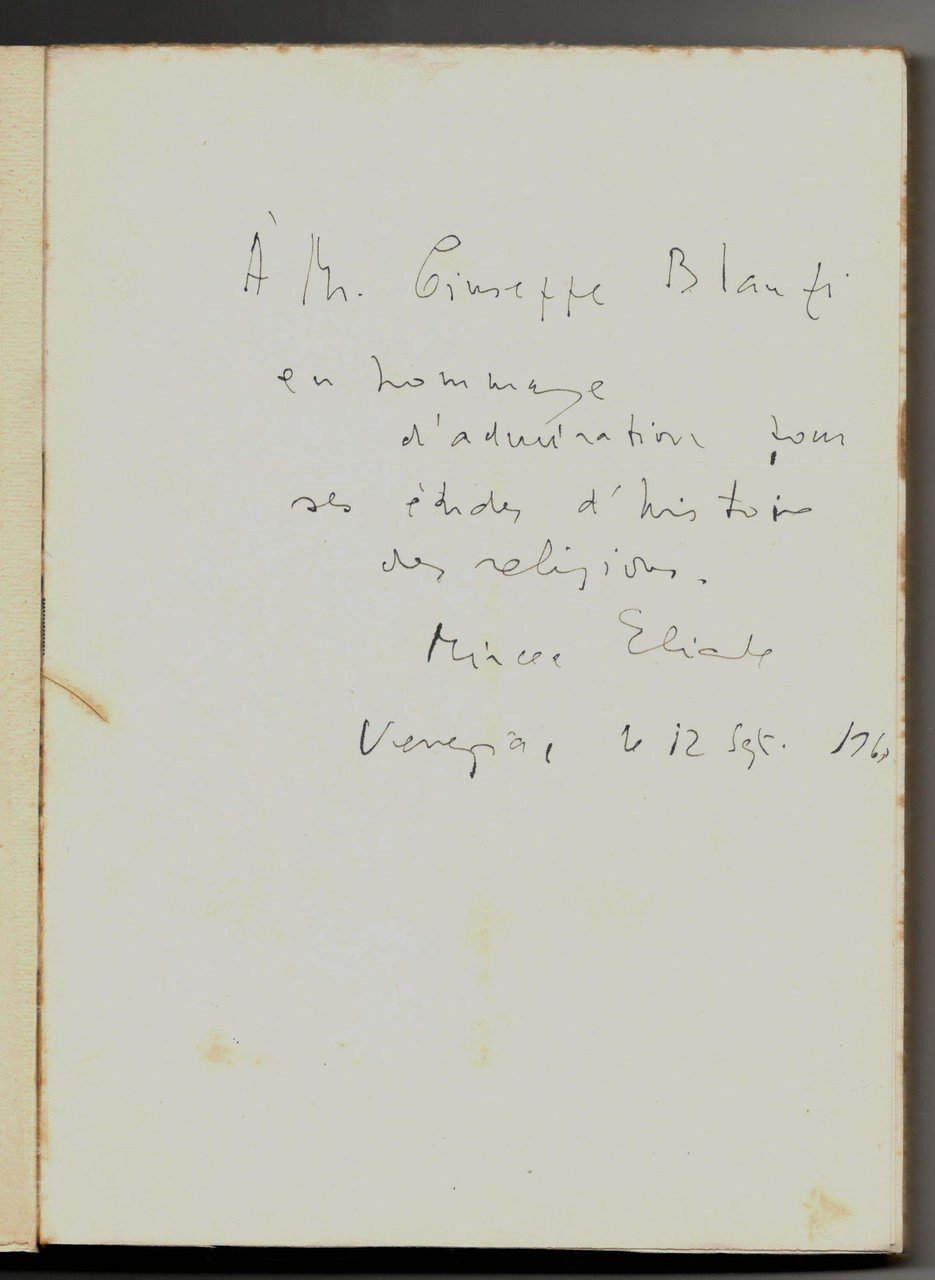 À Mr. Giuseppe
en hommage
d'admiration pour
ses études d'histoire
des religions.
Mircea Eliade
Venezia, le 12 Sept.